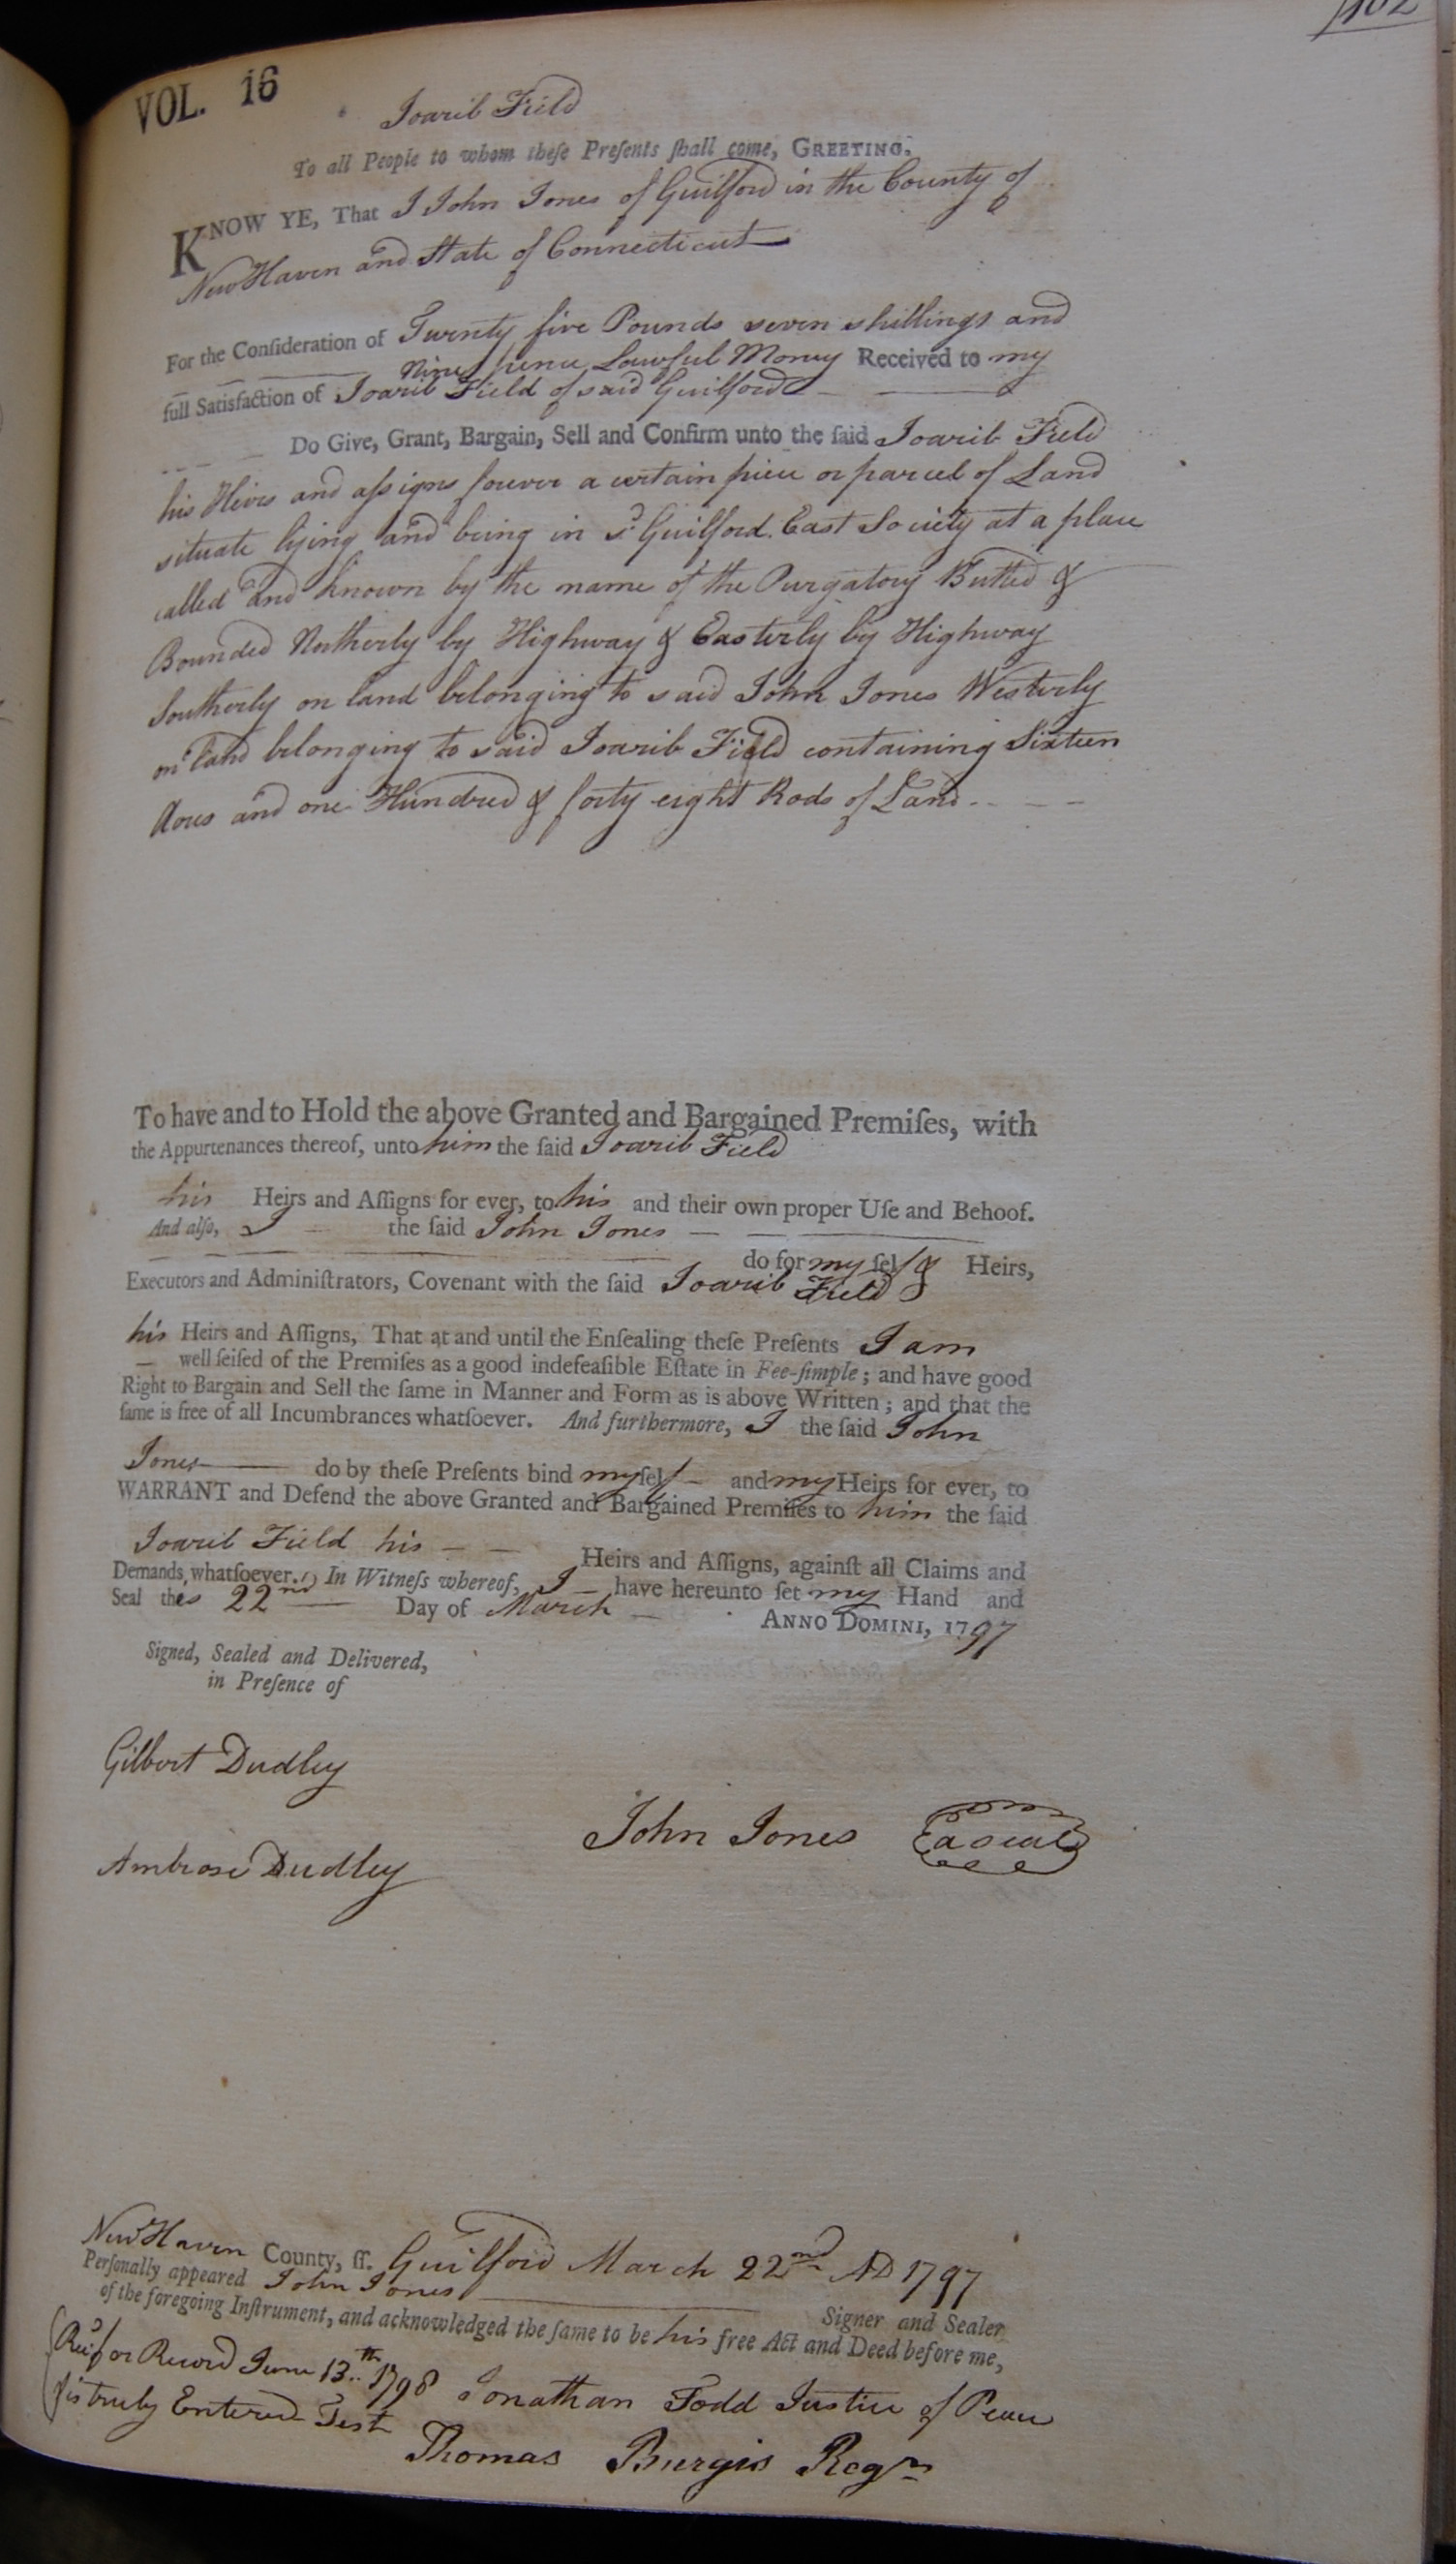 102
VOL. 16
Joarib Field
To all People to whom theſe Preſents ſhall come, GREETING.
KNOW YE, That I John Jones of Guilford in the County of
New Haven and State of Connecticut
For the Conſideration of Twenty five Pounds seven shillings and
Nine pence Lawful Money Received to my
full Satisfaction of Joarib Field of said Guilford
Do Give, Grant, Bargain, Sell and Confirm unto the ſaid Joarib Field
his Heirs and aſsigns forever a certain piece or parcel of Land
situate lying and being in sd Guilford East Society at a place
called and known by the name of the Purgatory Butted &
Bounded Notherly by Highway & Easterly by Highway
Southerly on land belonging to said John Jones Westerly
on land belonging to said Joarib Field containing Sixteen
Acres and one Hundred & forty eight Rods of Land
To have and to Hold the above Granted and Bargained Premiſes, with
the Appurtenances thereof, unto him the ſaid Joarib Field
his Heirs and Aſſigns for ever, to his and their own proper Uſe and Behoof.
And alſo, I the ſaid John Jones
do for my ſelf & Heirs,
Executors and Adminiſtrators, Covenant with the ſaid Joarib Field
his Heirs and Aſſigns, That at and until the Enſealing theſe Preſents I am
well ſeiſed of the Premiſes as a good indefeaſible Eſtate in Fee-ſimple; and have good
Right to Bargain and Sell the ſame in Manner and Form as is above Written; and that the
ſame is free of all Incumbrances whatſoever. And furthermore, I the ſaid John
Jones do by theſe Preſents bind my ſelf and my Heirs for ever, to
WARRANT and Defend the above Granted and Bargained Premiſes to him the ſaid
Joarib Field his Heirs and Aſſigns, againſt all Claims and
Demands whatſoever. In Witneſs whereof, I have hereunto ſet my Hand and
Seal this 22nd Day of March ANNO DOMINI, 1797
Signed, Sealed and Delivered,
in Preſence of
Gilbert Dudley
John Jones a seal
Ambrose Dudley
New Haven County, ſſ. Guilford March 22nd AD 1797
Perſonally appeared John Jones Signer and Sealer
of the foregoing Inſtrument, and acknowledged the ſame to be his free Act and Deed before me,
Recd for Record June 13th 1798 Jonathan Todd Justice of Peace
& is truly Entered Test
Thomas Burgis Regr